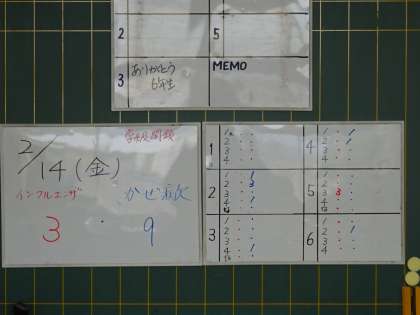 2
5
3 ありがとう
6年生
MEMO
2/14(金)
学級閉鎖
インフルエンザ
かぜ病欠
3 ・ 9
1
1 ・ ・
2 ・ ・
3 ・ ・
4 ・ ・
4
1 ・ 1
2 ・ 1
3 ・ ・
4 ・ ・
2
1 ・ 1
2 ・ 3
3 ・ ・
4 ・ 1
5
1 ・ ・
2 3 ・
3 ・ ・
4 ・ ・
3
1 ・ ・
2 ・ ・
3 ・ ・
4 ・ 1
6
1 ・ ・
2 ・ 1
3 ・ ・
4 ・ ・